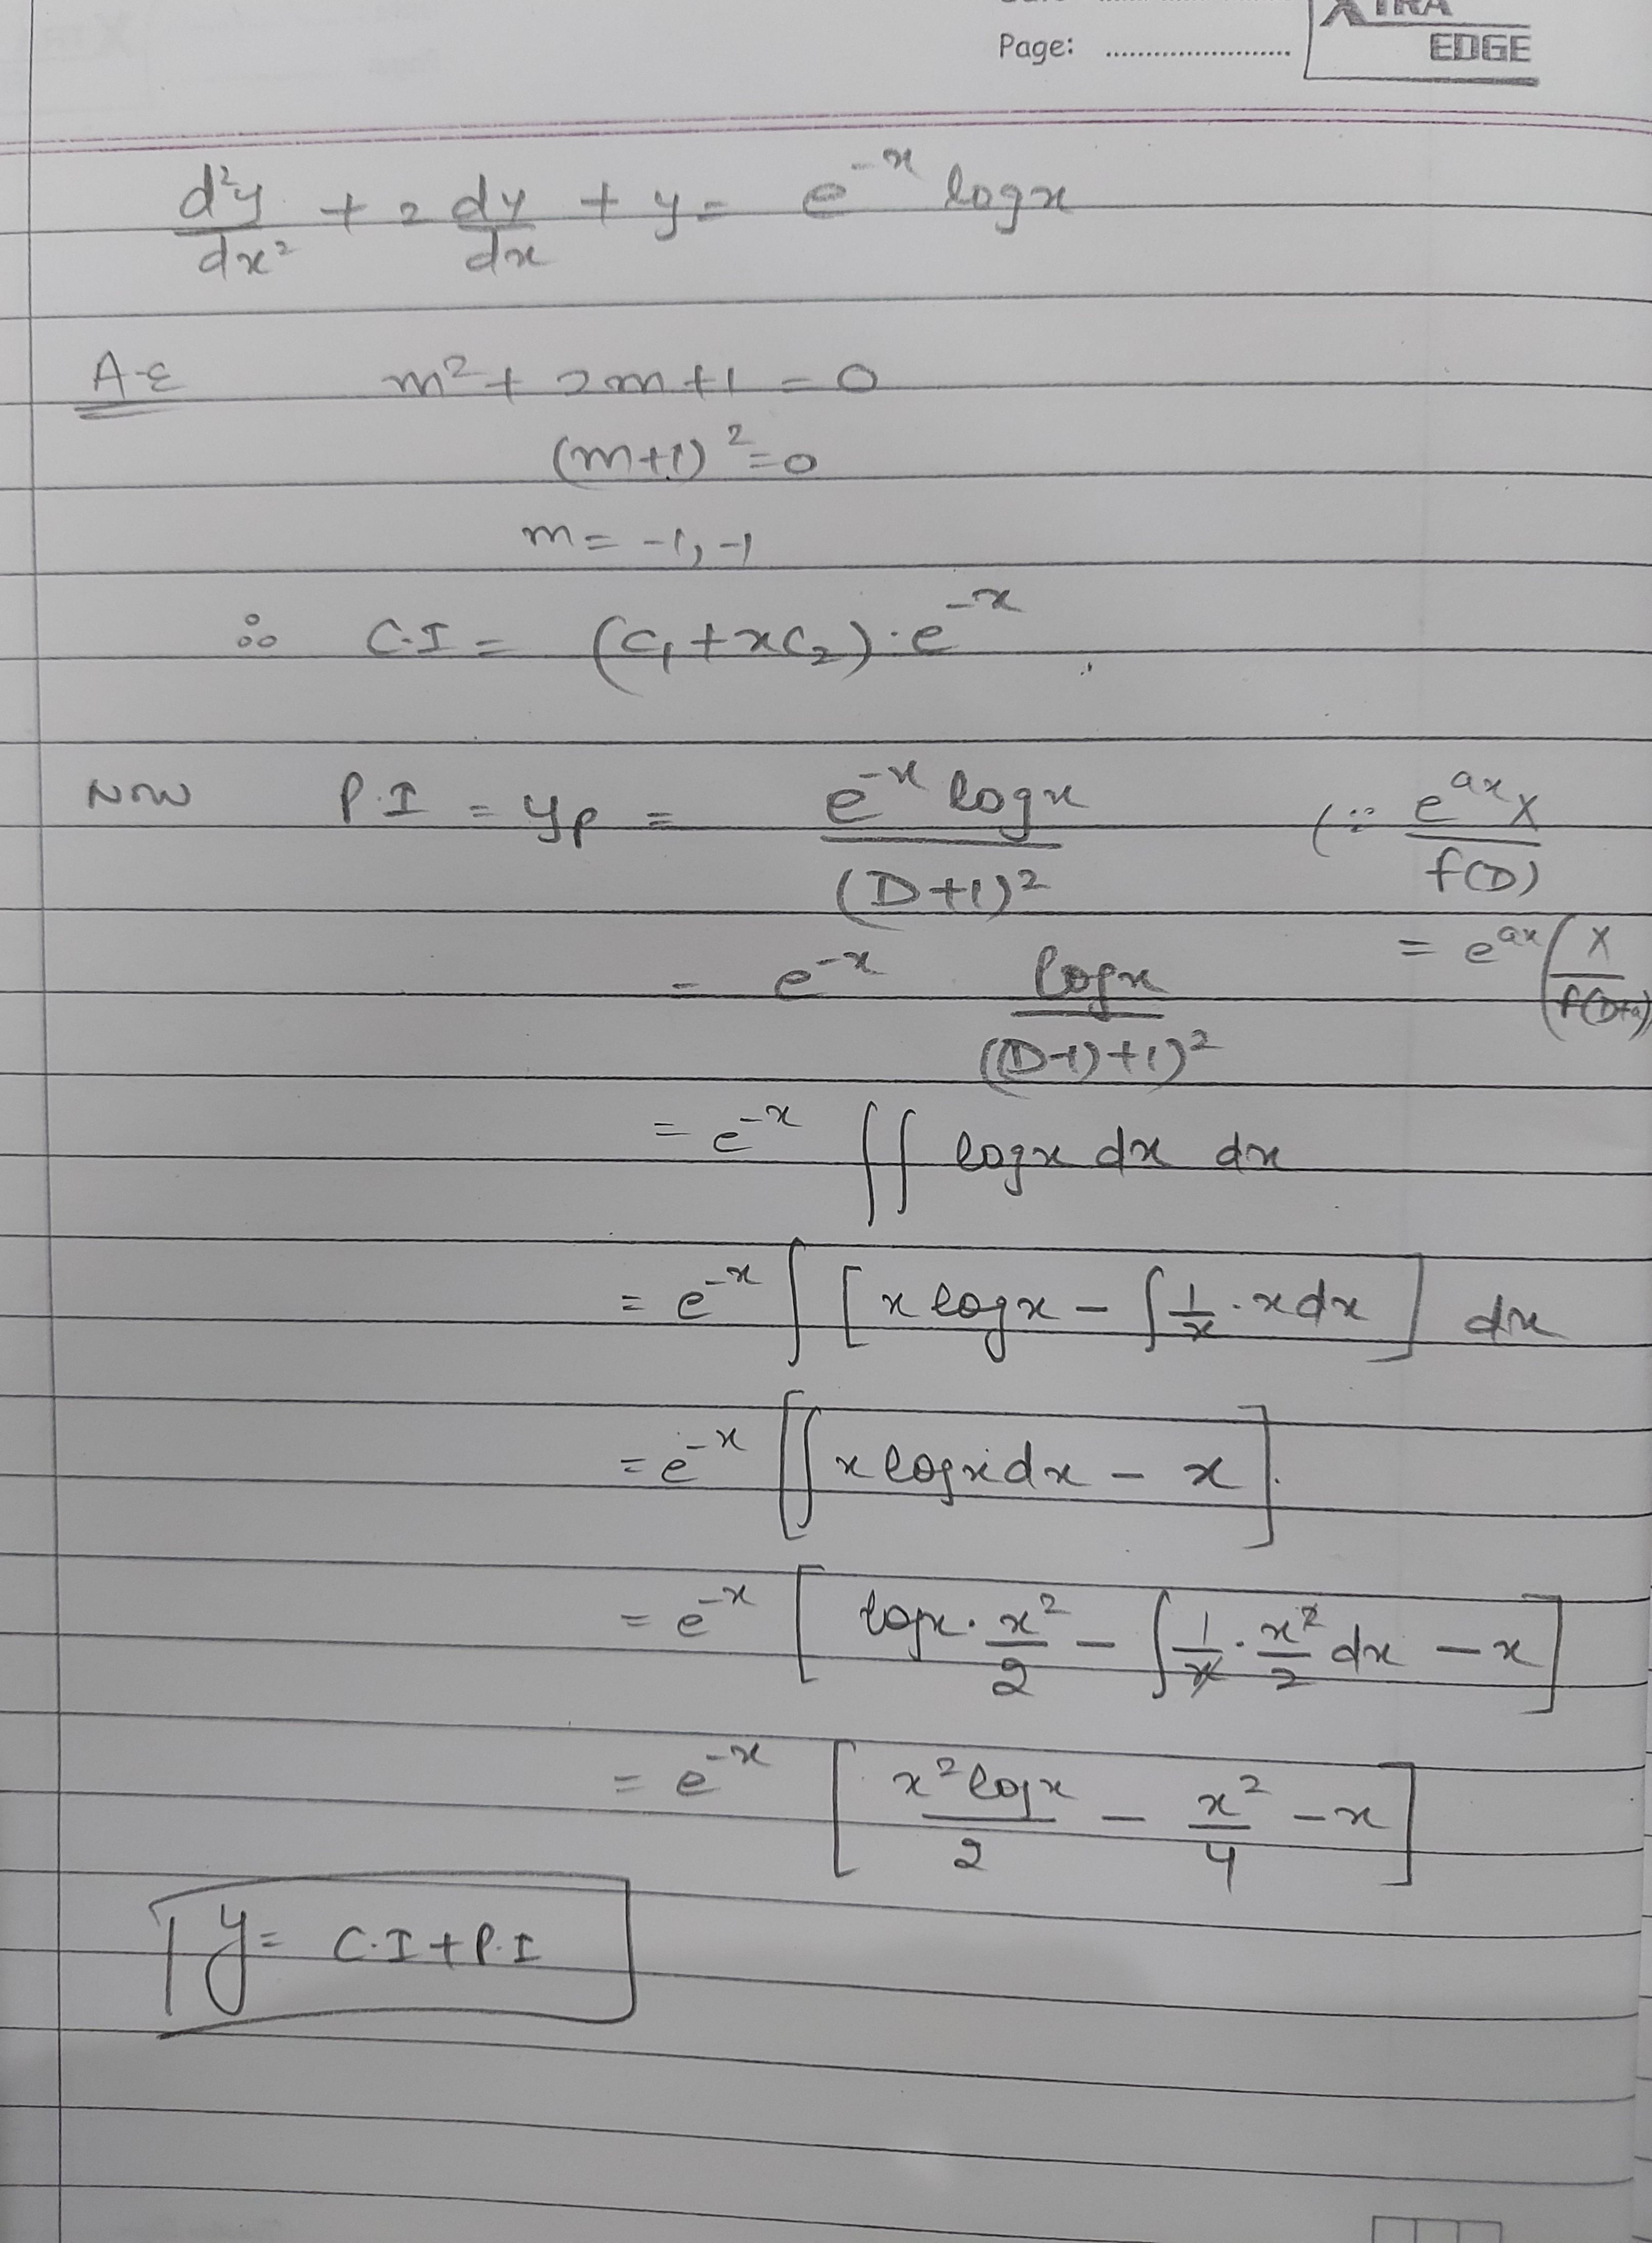 XTRA
EDGE
Page: ........................
d²y/dx² + 2 dy/dx + y = e^-x logx
A-E m² + 2m+1 = 0
(m+1)² = 0
m = -1, -1
∴ C.I = (C₁+xC₂).e^-x
Now P.I = yp = e^-x logx / (D+1)² (∵ e^ax X / f(D)
= e^-x logx / ((D-1)+1)² = e^ax (X / f(D+a)
= e^-x ∫∫ logx dx dx
= e^-x ∫ [x logx - ∫ 1/x . x dx] dx
= e^-x [∫ x logx dx - x].
= e^-x [logx . x²/2 - ∫ 1/x . x²/2 dx - x]
= e^-x [x² logx / 2 - x²/4 - x]
y = C.I + P.I